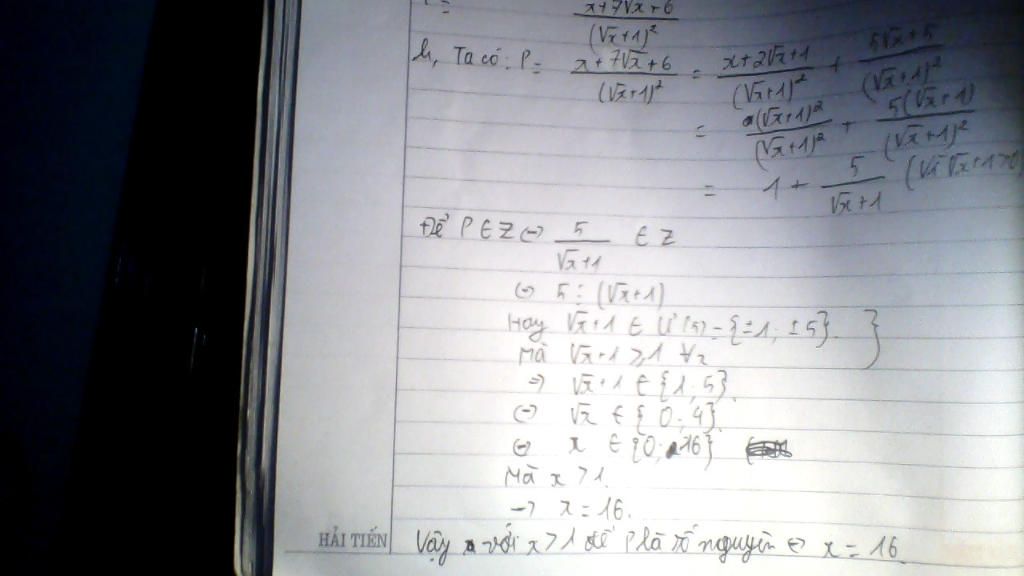 x+7√x+6 / (√x+1)²
Ta có: P = x+7√x+6 / (√x+1)² = x+2√x+1 / (√x+1)² + 5√x+5 / (√x+1)²
= (√x+1)² / (√x+1)² + 5(√x+1) / (√x+1)²
= 1 + 5 / √x+1 (Vì √x+1>0)
Để P ∈ Z ⇔ 5 / √x+1 ∈ Z
⇔ 5 ⋮ (√x+1)
Hay √x+1 ∈ Ư(5) = {±1; ±5}. }
Mà √x+1 ⩾ 1 ∀x
⇒ √x+1 ∈ {1; 5}
⇔ √x ∈ {0; 4}
⇔ x ∈ {0; 16}
Mà x > 1.
→ x = 16.
HẢI TIẾN
Vậy với x > 1 để P là số nguyên ⇔ x = 16